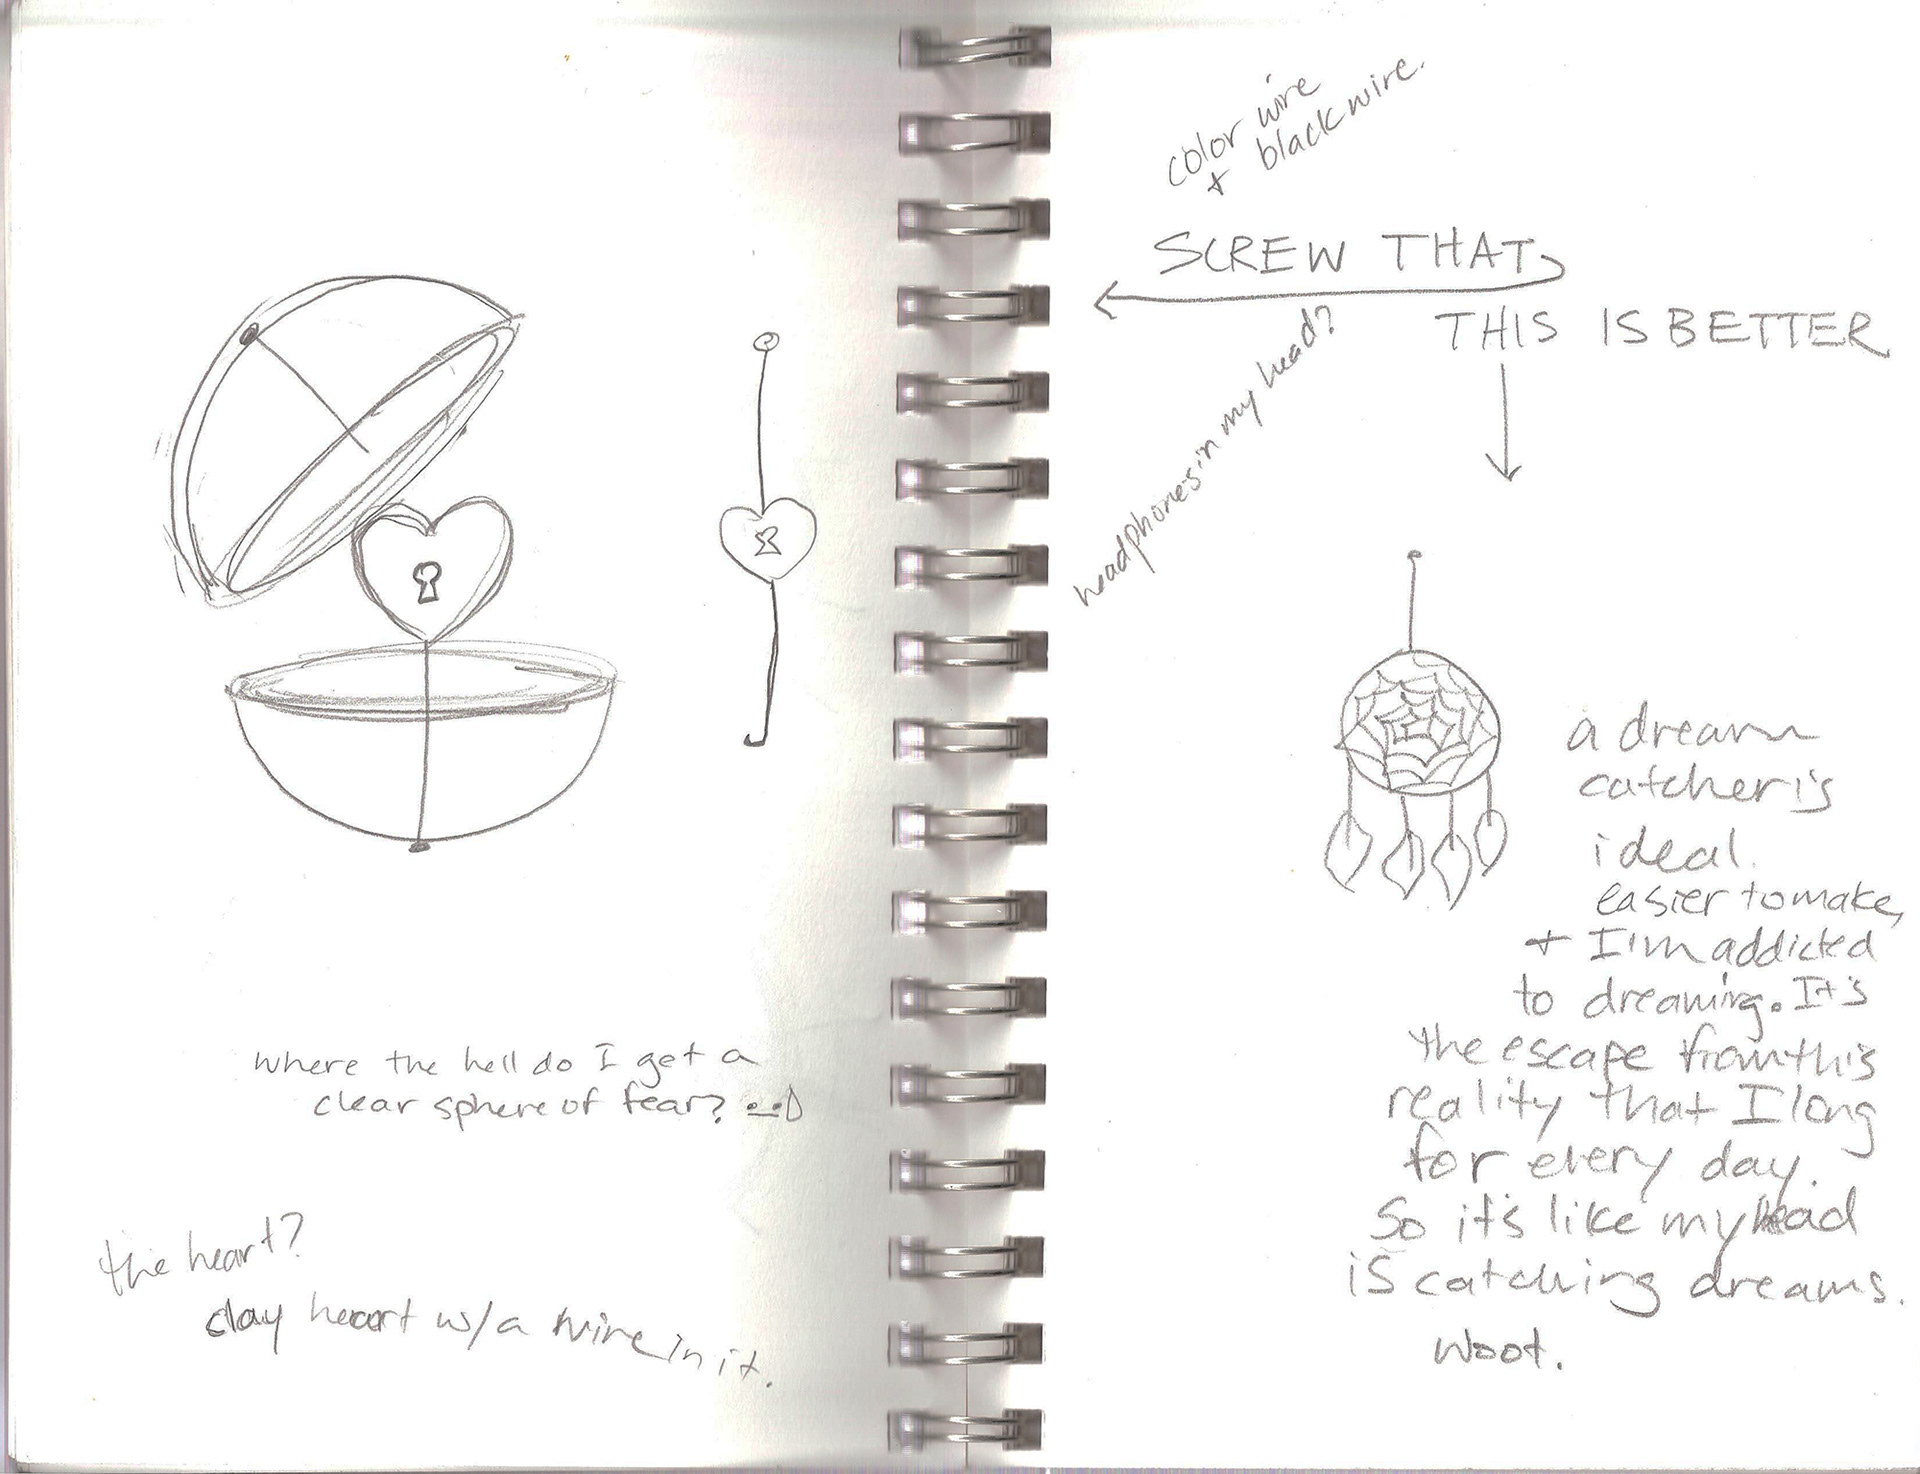 where the hell do I get a
clear sphere of fear?
the heart?
clay heart w/a wire in it.
color wire
+ black wire.
SCREW THAT,
THIS IS BETTER
headphones in my head?
a dream
catcher is
ideal.
easier to make,
+ I'm addicted
to dreaming. It's
the escape from this
reality that I long
for every day.
So it's like my head
is catching dreams.
woot.